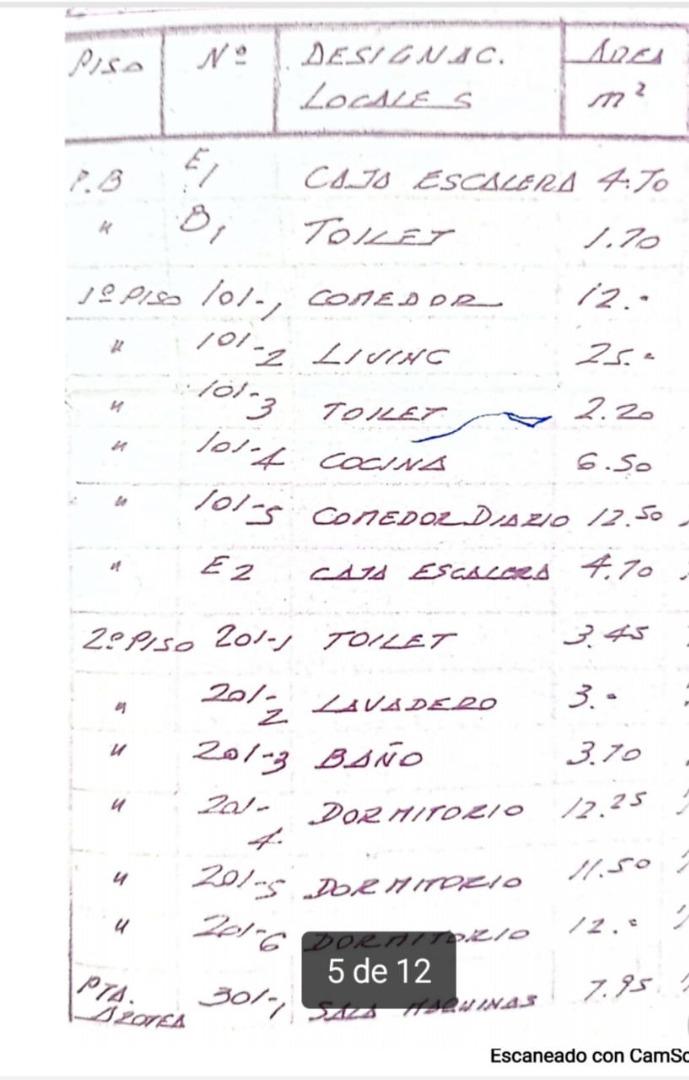 PISO Nº DESIGNAC. LOCALES AREA m²
P.B E1 CAJA ESCALERA 4.70
" B1 TOILET 1.70
1º PISO 101-1 COMEDOR 12.-
" 101-2 LIVING 25.-
" 101-3 TOILET 2.20
" 101-4 COCINA 6.50
" 101-5 COMEDOR DIARIO 12.50
" E2 CAJA ESCALERA 4.70
2º PISO 201-1 TOILET 3.45
" 201-2 LAVADERO 3.-
" 201-3 BAÑO 3.70
" 201-4 DORMITORIO 12.25
" 201-5 DORMITORIO 11.50
" 201-6 DORMITORIO 12.-
5 de 12
PTA. AZOTEA 301-1 SALA MAQUINAS 7.95
Escaneado con CamSc